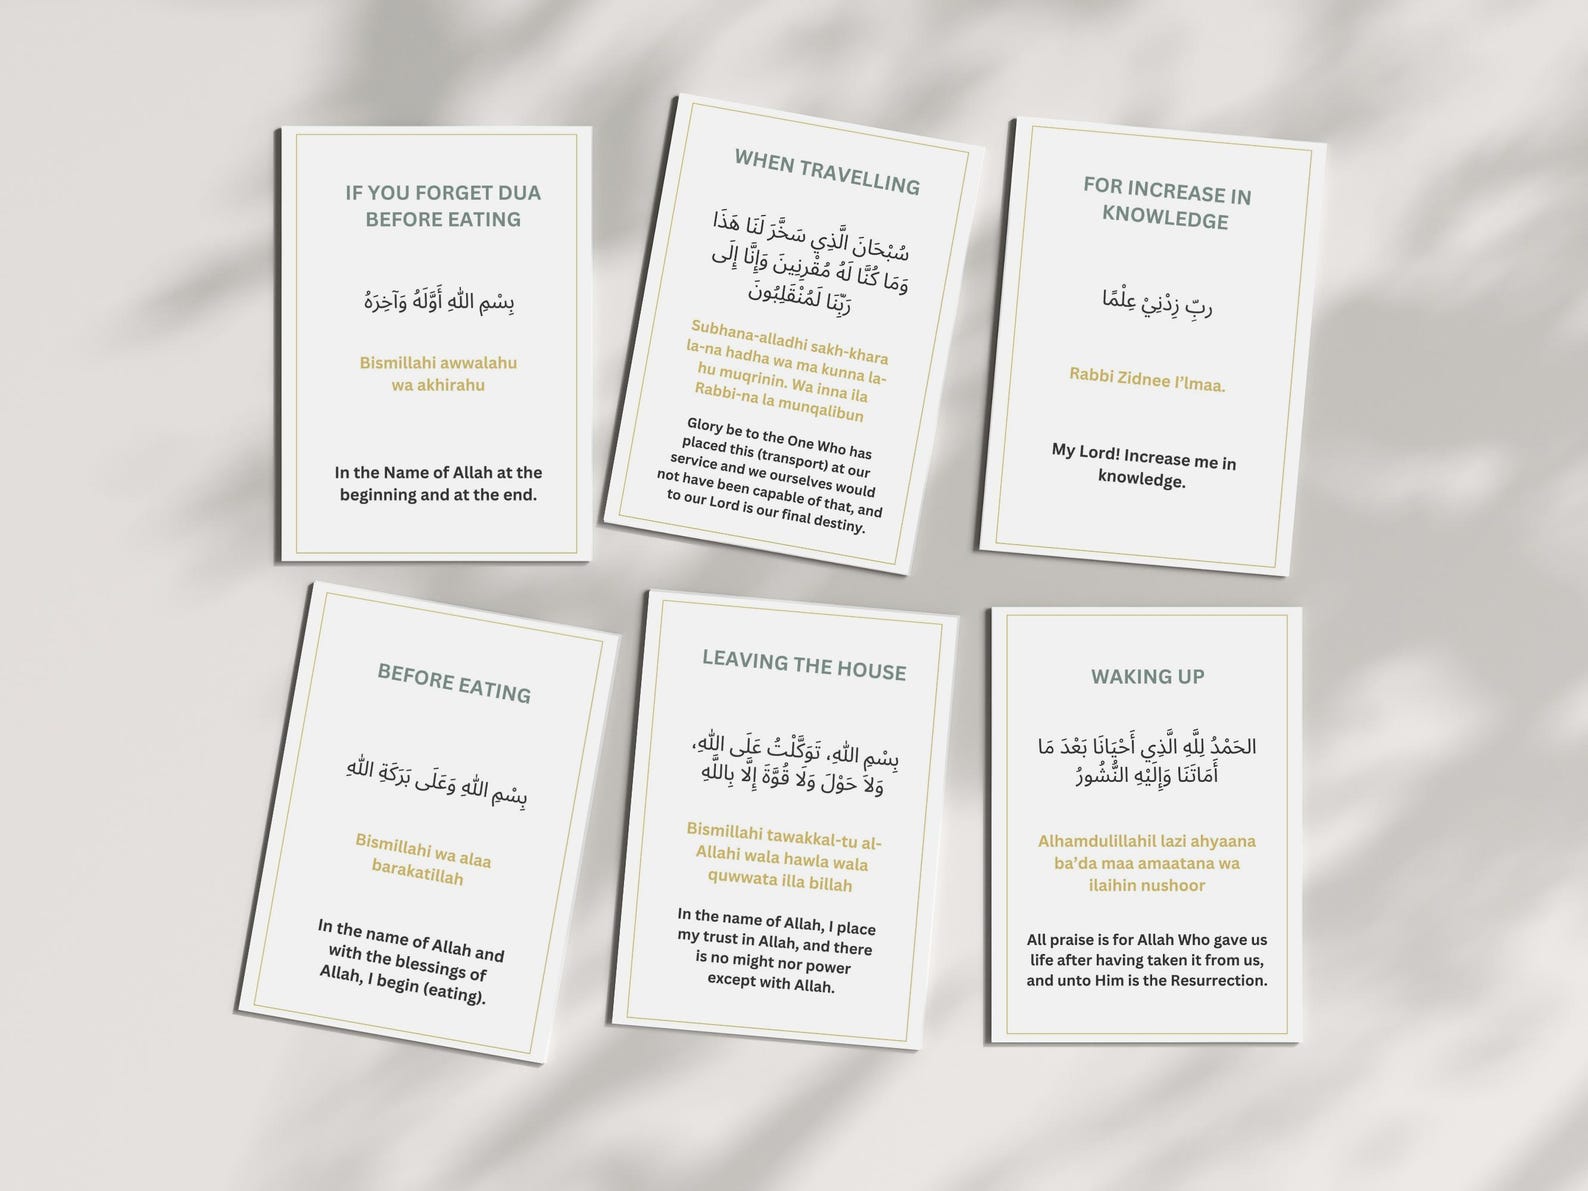 IF YOU FORGET DUA
BEFORE EATING
بِسْمِ اللهِ أَوَّلَهُ وَآخِرَهُ
Bismillahi awwalahu
wa akhirahu
In the Name of Allah at the
beginning and at the end.
WHEN TRAVELLING
سُبْحَانَ الَّذِي سَخَّرَ لَنَا هَذَا
وَمَا كُنَّا لَهُ مُقْرِنِينَ وَإِنَّا إِلَى
رَبِّنَا لَمُنْقَلِبُونَ
Subhana-alladhi sakh-khara
la-na hadha wa ma kunna la-
hu muqrinin. Wa inna ila
Rabbi-na la munqalibun
Glory be to the One Who has
placed this (transport) at our
service and we ourselves would
not have been capable of that, and
to our Lord is our final destiny.
FOR INCREASE IN
KNOWLEDGE
ربِّ زِدْنِيْ عِلْمًا
Rabbi Zidnee I’lmaa.
My Lord! Increase me in
knowledge.
BEFORE EATING
بِسْمِ اللهِ وَعَلَى بَرَكَةِ اللهِ
Bismillahi wa alaa
barakatillah
In the name of Allah and
with the blessings of
Allah, I begin (eating).
LEAVING THE HOUSE
بِسْمِ اللهِ، تَوَكَّلْتُ عَلَى اللهِ،
وَلاَ حَوْلَ وَلَا قُوَّةَ إِلَّا بِاللَّهِ
Bismillahi tawakkal-tu al-
Allahi wala hawla wala
quwwata illa billah
In the name of Allah, I place
my trust in Allah, and there
is no might nor power
except with Allah.
WAKING UP
الحَمْدُ لِلَّهِ الَّذِي أَحْيَانَا بَعْدَ مَا
أَمَاتَنَا وَإِلَيْهِ النُّشُورُ
Alhamdulillahil lazi ahyaana
ba’da maa amaatana wa
ilaihin nushoor
All praise is for Allah Who gave us
life after having taken it from us,
and unto Him is the Resurrection.